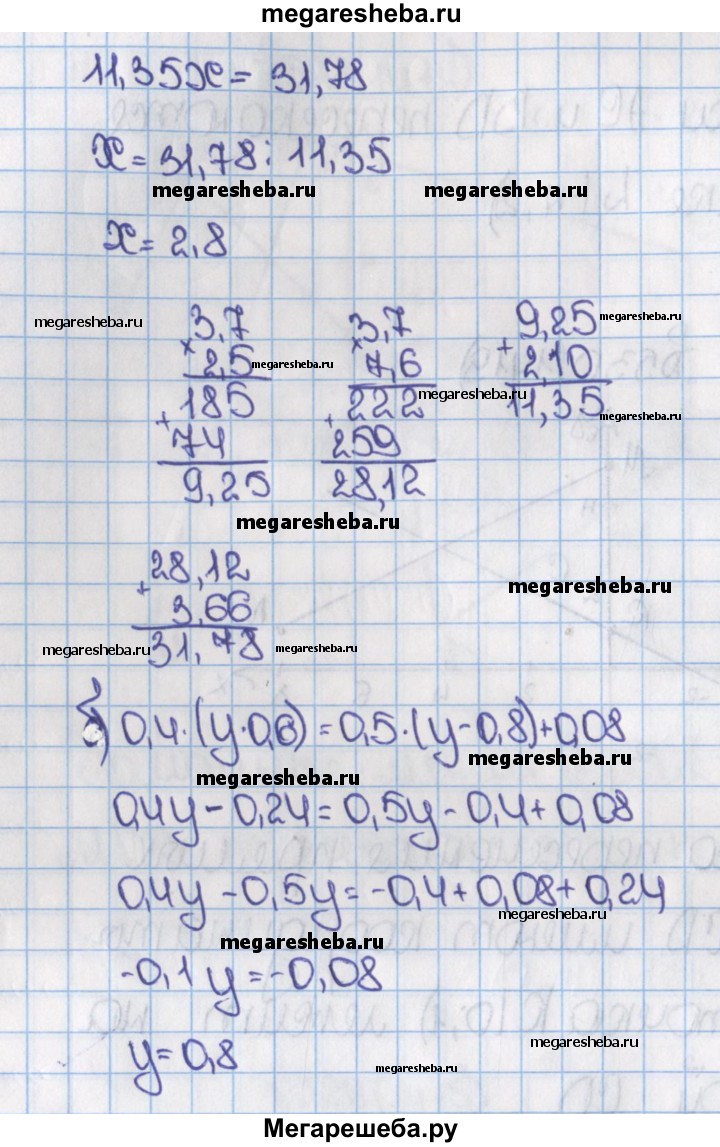 megaresheba.ru
11,35x = 31,78
x = 31,78 : 11,35
megaresheba.ru megaresheba.ru
x = 2,8
megaresheba.ru 3,7 3,7 9,25 megaresheba.ru
× 2,5 megaresheba.ru × 7,6 + 2,10
185 222 megaresheba.ru 11,35 megaresheba.ru
+ 74 + 259
9,25 28,12
megaresheba.ru
28,12 megaresheba.ru
+ 3,66
megaresheba.ru 31,78 megaresheba.ru
б) 0,4·(y·0,6) = 0,5·(y-0,8)+0,08
megaresheba.ru megaresheba.ru
0,4y - 0,24 = 0,5y - 0,4 + 0,08
0,4y - 0,5y = -0,4 + 0,08 + 0,24
megaresheba.ru megaresheba.ru
-0,1y = -0,08
y = 0,8
megaresheba.ru megaresheba.ru
Мегарешеба.ру